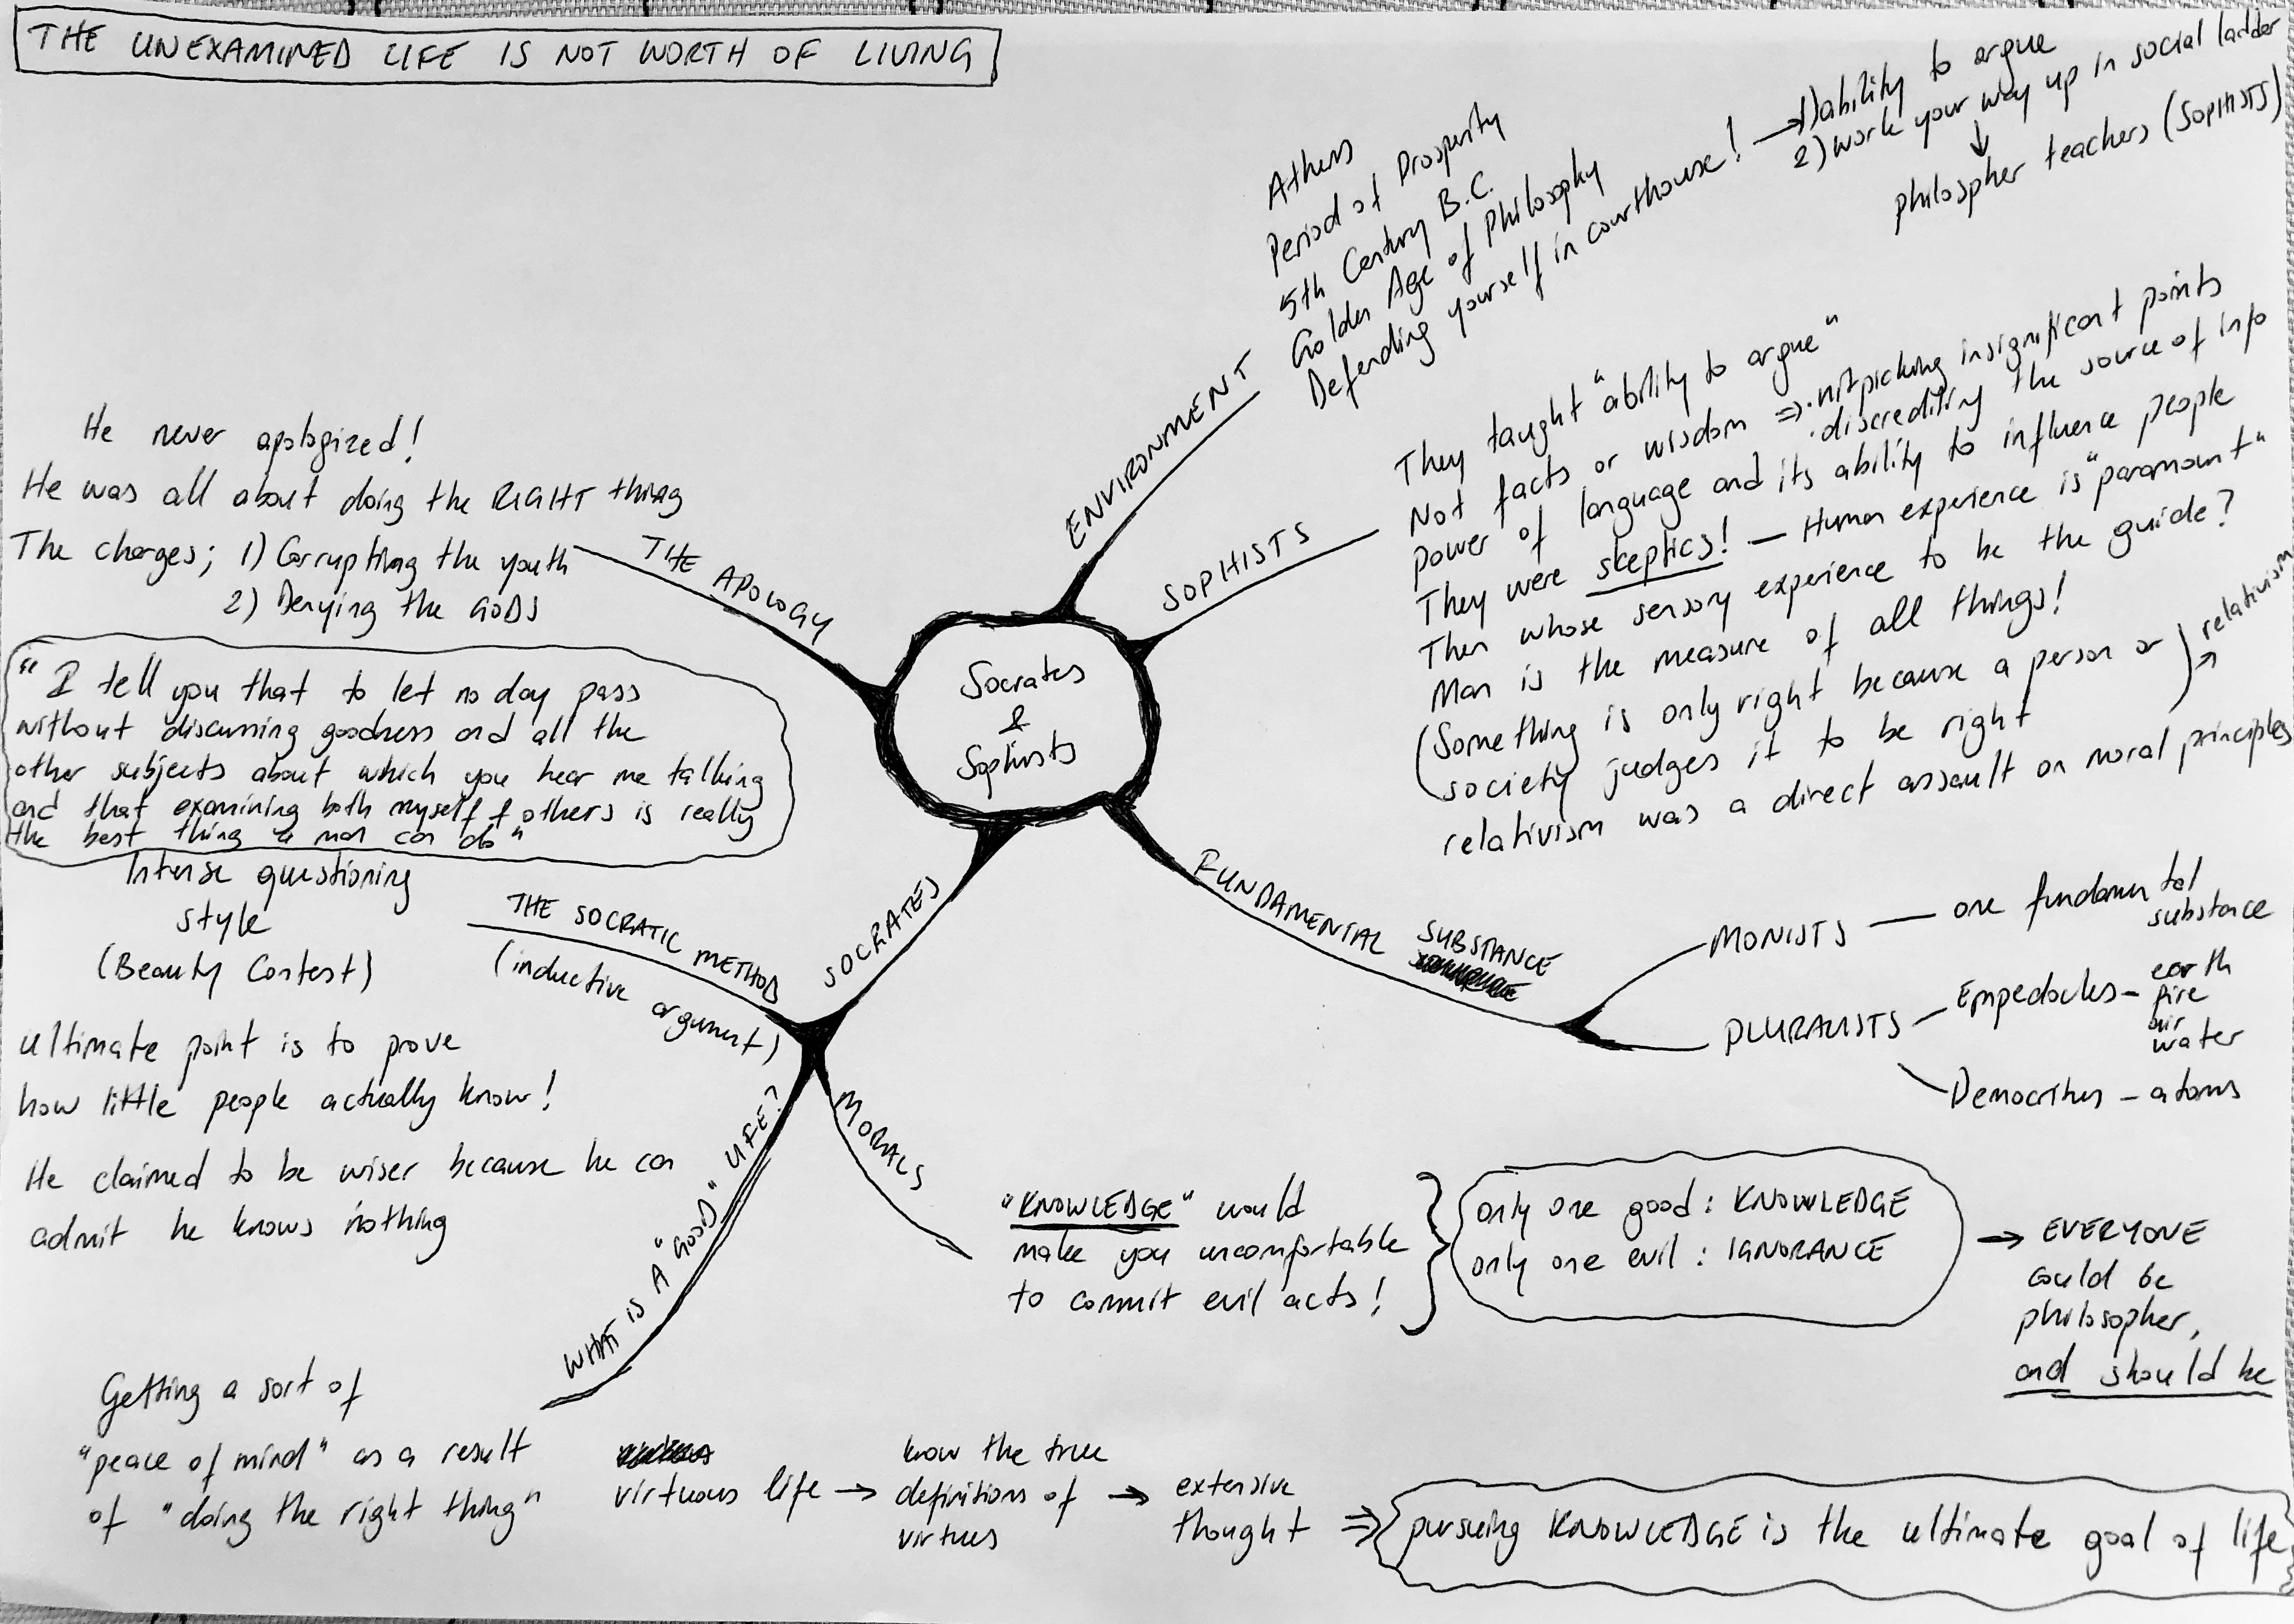 THE UNEXAMINED LIFE IS NOT WORTH OF LIVING
Socrates
&
Sophists
ENVIRONMENT
Athens
Period of Prosperity
5th Century B.C.
Golden Age of Philosophy
Defending yourself in courthouse! → 1) ability to argue
2) work your way up in social ladder
↓
philospher teachers (SOPHISTS)
SOPHISTS
They taught "ability to argue"
Not facts or wisdom ⇒ · nitpicking insignificant points
· discrediting the source of info
power of language and its ability to influence people
They were skeptics! — Human experience is "paramount"
Then whose sensory experience to be the guide?
Man is the measure of all things!
(Something is only right because a person or
society judges it to be right) → relativism
relativism was a direct assault on moral principles
FUNDAMENTAL SUBSTANCE
MONISTS — one fundamental
substance
PLURALISTS
Empedocles - earth
fire
air
water
Democritus - atoms
THE APOLOGY
He never apologized!
He was all about doing the RIGHT thing
The charges; 1) Corrupting the youth
2) Denying the GODS
"I tell you that to let no day pass
without discussing goodness and all the
other subjects about which you hear me talking
and that examining both myself & others is really
the best thing a man can do"
SOCRATES
THE SOCRATIC METHOD
(inductive argument)
Intense questioning
style
(Beauty Contest)
ultimate point is to prove
how little people actually know!
He claimed to be wiser because he can
admit he knows nothing
MORALS
"KNOWLEDGE" would
make you uncomfortable
to commit evil acts!
only one good: KNOWLEDGE
only one evil: IGNORANCE
→ EVERYONE
could be
philosopher,
and should be
WHAT IS A "GOOD" LIFE?
Getting a sort of
"peace of mind" as a result
of "doing the right thing"
virtuous life → know the true
definitions of
virtues
→ extensive
thought
⇒ pursuing KNOWLEDGE is the ultimate goal of life